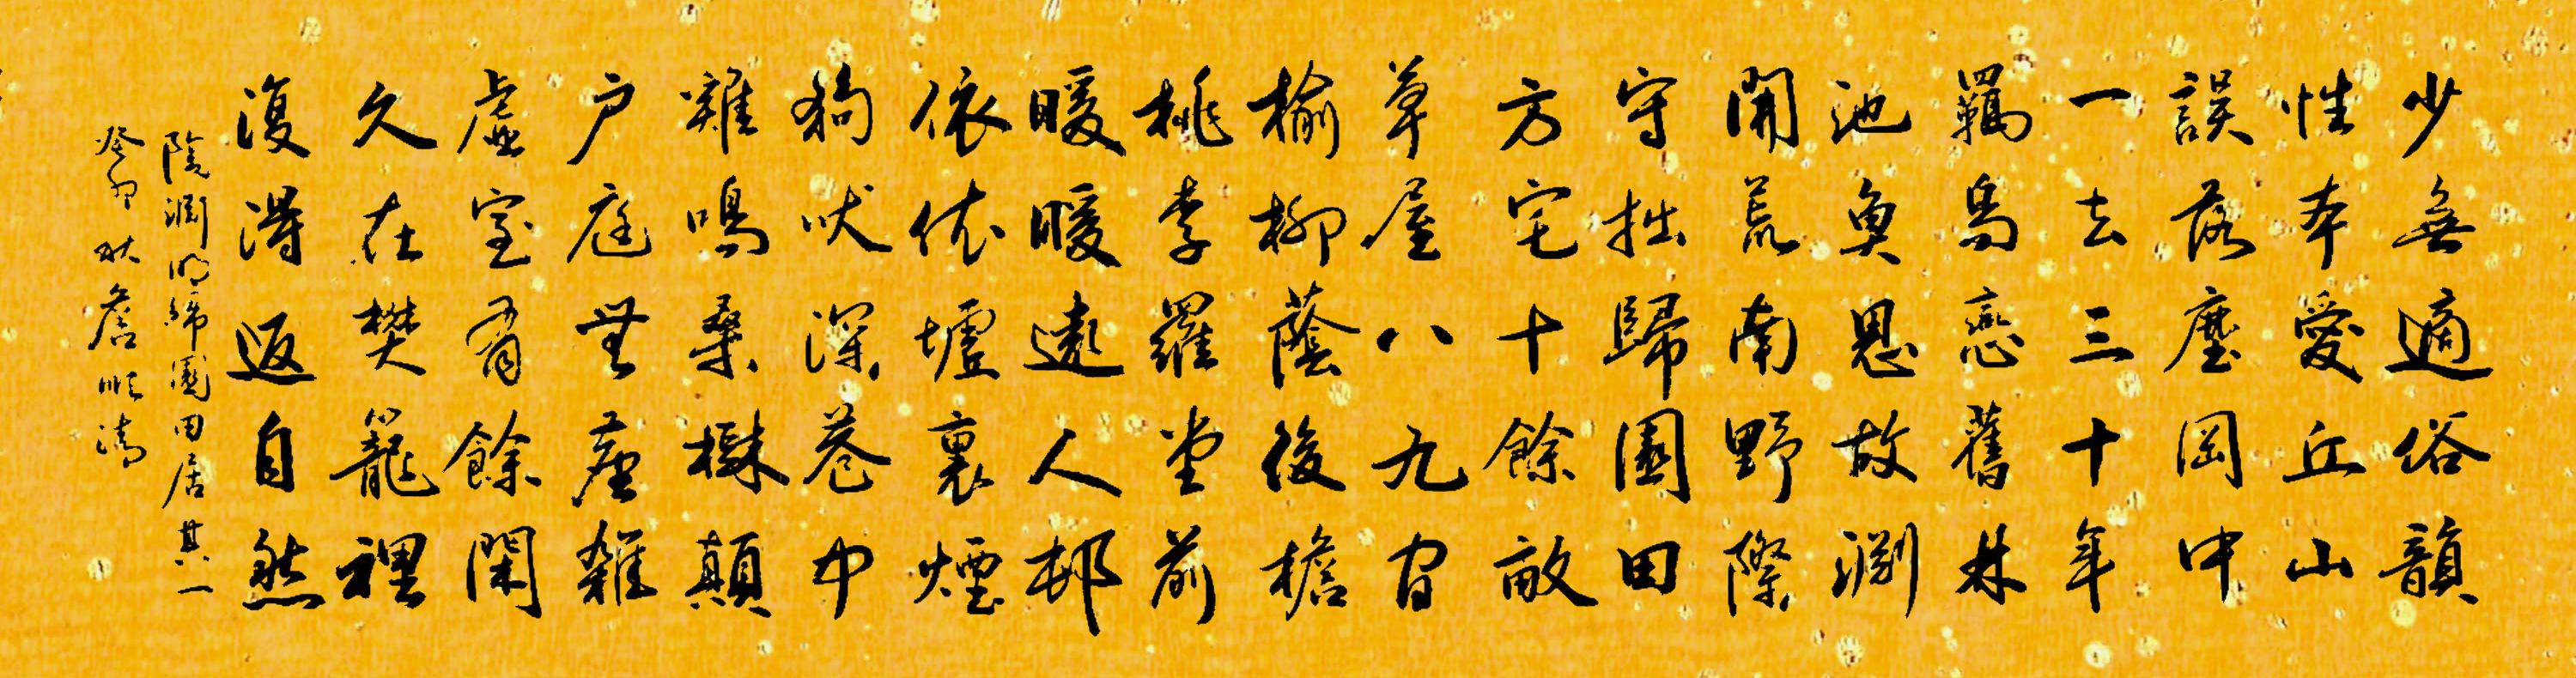 少無適俗韻
性本愛丘山
誤落塵网中
一去三十年
羈鳥戀舊林
池魚思故淵
開荒南野際
守拙歸園田
方宅十餘畝
草屋八九間
榆柳蔭後檐
桃李羅堂前
暖暖遠人邨
依依墟裏煙
狗吠深巷中
雞鳴桑樹顛
户庭無塵雜
虛室有餘閑
久在樊籠裡
復得返自然
陶淵明歸園田居其一
癸卯秋詹順清